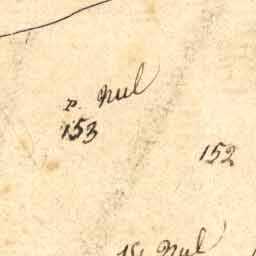 p. Nul
153
152
Nul